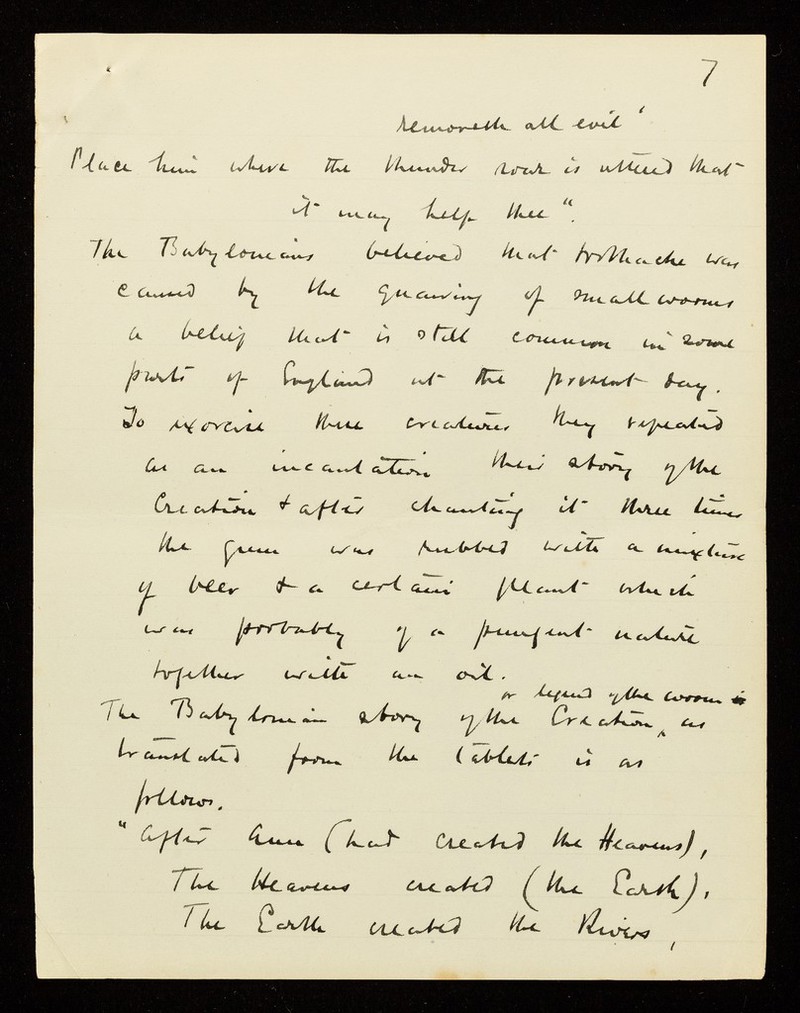 7
removeth all evil'
Place him where the thunder roar is uttered that
it may help thee".
The Babylonians believed that toothache was
caused by the gnawing of small worms
a belief that is still common in some
parts of England at the present day.
To exorcise these creatures they repeated
as an incantation their story of the
Creation & after chanting it three times
the gum was rubbed with a mixture
of beer & a certain plant which
was probably of a pungent nature
together with an oil.
or legend of the worm
The Babylonian story of the Creation ‸ as
translated from the tablets is as
follows.
"After Anu (had created the Heavens),
The Heavens created (the Earth),
The Earth created the Rivers,